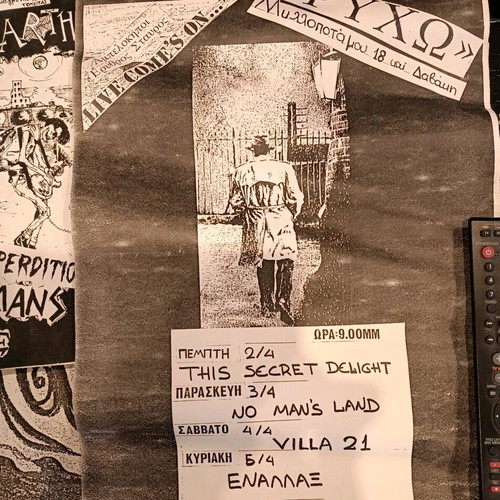 ARTH
PERDITIO
MANS
Ερυθρός Σταυρός
LIVE COME'S ON...
ΡΥΧΩ»
Μυλλοποτάμου 18 και Δαβάκη
ΩΡΑ:9.00ΜΜ
ΠΕΜΠΤΗ 2/4
THIS SECRET DELIGHT
ΠΑΡΑΣΚΕΥΗ 3/4
NO MAN'S LAND
ΣΑΒΒΑΤΟ 4/4
VILLA 21
ΚΥΡΙΑΚΗ 5/4
ΕΝΑΛΛΑΞ